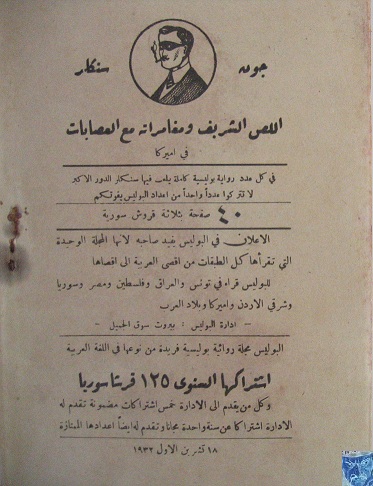 جون سنكلر
اللص الشريف ومغامراته مع العصابات
في اميركا
في كل عدد رواية بوليسية كاملة يلعب فيها سنكلر الدور الاكبر
لا تتركوا عدداً واحداً من اعداد البوليس يفوتكم
٤٠ صفحة بثلاثة قروش سورية
الاعلان في البوليس يفيد صاحبه لانها المجلة الوحيدة
التي تقرأها كل الطبقات من اقصى العربية الى اقصاها
للبوليس قراء في تونس والعراق وفلسطين ومصر وسوريا
وشرقي الاردن واميركا وبلاد العرب
- ادارة البوليس : بيروت سوق الجميل -
البوليس مجلة روائية بوليسية فريدة من نوعها في اللغة العربية
اشتراكها السنوى ١٢٥ قرشا سوريا
وكل من يقدم الى الادارة خمس اشتراكات مضمونة تقدم له
الادارة اشتراكا عن سنة واحدة مجانا وتقدم له ايضاً اعدادها الممتازة
١٨ تشرين الاول ١٩٣٢